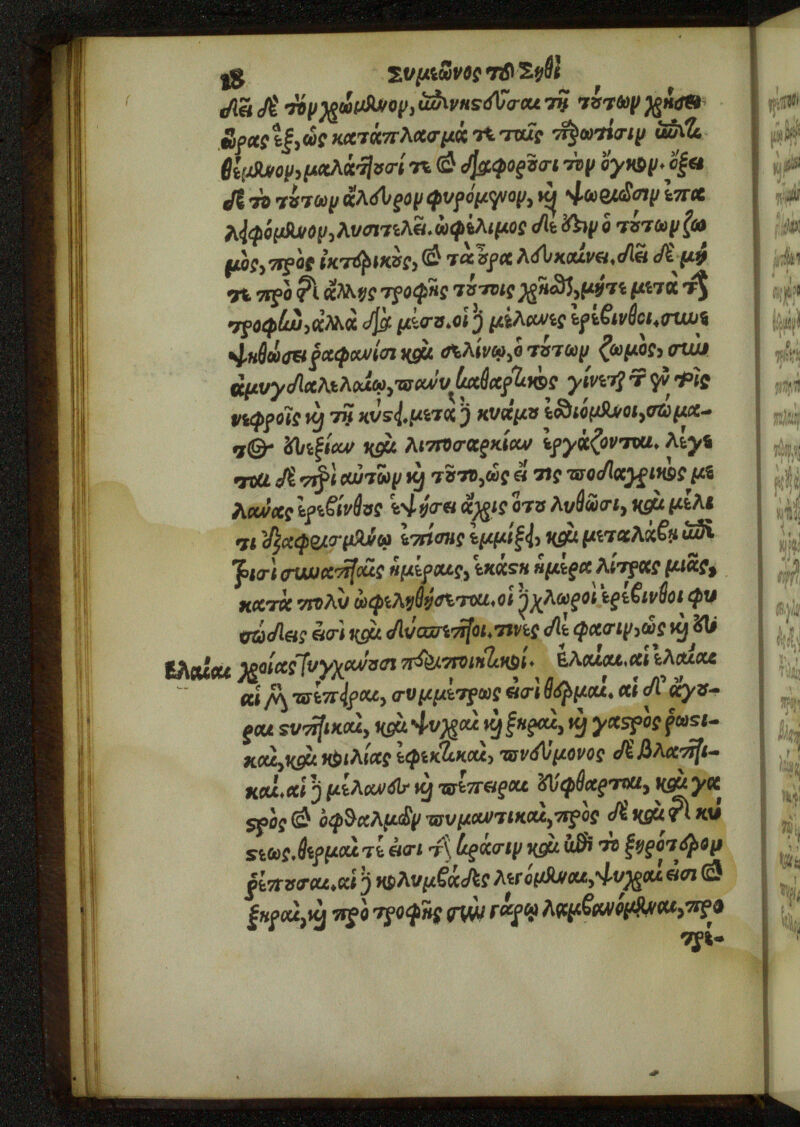 18 Συμεῶνος τοῦ Σηθὶ
δεῖ δὲ τὸν χρώμενον, παλινηστεῦσαι τῇ τούτων χρήσει
ὥρας ἓξ, ὡς κατάπλασμά τε ταῖς πρώτισιν
θέμενον, μαλάττουσί τε καὶ διαφοροῦσι τὸν ὄγκον. ὄξει
δὲ τὸ τούτων ἄλευρον φυρόμενον, καὶ ψωριῶσιν ἐπα
λειφόμενον, λυσιτελεῖ. ὠφέλιμος δέ ἐστιν ὁ τούτων ζω
μὸς, πρὸς ἰκτερικοὺς, καὶ τὰ οὖρα λευκαίνει. δεῖ δὲ μή
τε πρὸ τῆς ἄλλης τροφῆς τούτοις χρῆσθαι, μήτε μετὰ τὴν
τροφὴν, ἀλλὰ διὰ μέσου. οἱ δὲ μέλανες ἐρέβινθοι, συνε
ψηθῶσι ῥαφανίσι καὶ σελίνῳ, ὁ τούτων ζωμὸς, σὺν
ἀμυγδαλελαίῳ, πάνυ καθαρτικὸς γίνεται τῶν ἐν τοῖς
νεφροῖς καὶ τῇ κύστει. μετὰ δὲ κυάμου ἐσθιόμενοι, σώμα-
τος εὐεξίαν καὶ λιποσαρκίαν ἐργάζονται. λέγε
ται δὲ περὶ αὐτῶν καὶ τοῦτο, ὡς εἴ τις ποδαγρικὸς με
λανας ἐρεβίνθους ἑψήσει ἄχρις ὅτου λυθῶσι, καὶ μέλι
τι ἐξαφρισμένῳ ἐπίσης ἐμμίξει, καὶ μεταλάβῃ
συναπταῖς ἡμέραις, ἑκάστη ἡμέρα λίτρας μιᾶς,
κατὰ πολὺ ὠφεληθήσεται. οἱ δὲ χλωροὶ ἐρέβινθοι φυ
σώδεις εἰσὶ καὶ δύσπεπτοι. τινὲς δέ φασιν, ὡς καὶ εὐ
χροίας τυγχάνουσι περιποιητικοί. Ἐλαῖαι. αἱ ἐλαῖαι
Ἐλαῖαι
αἱ μὲν πέπειροι, συμμέτρως εἰσὶ θερμαί. αἱ δὲ ἄγου-
ροι στυπτικαὶ, καὶ ψυχραὶ καὶ ξηραὶ, καὶ γαστρὸς ῥωστι-
καὶ, καὶ κοιλίας ἐφεκτικαὶ, πνεύμονος δὲ βλαπτι-
καί. αἱ δὲ μέλαιναι καὶ πέπειραι εὔφθαρτοι, καὶ γα
στρὸς καὶ ὀφθαλμῶν πυμαντικαὶ, πρὸς δὲ καὶ τῆς κύ
στεως. θερμαί τέ εἰσι τὴν κρᾶσιν καὶ ἐπὶ τὸ ξηρότερον
ῥέπουσαι. αἱ δὲ κολυμβάδες λεγόμεναι, ψυχραί εἰσι καὶ
ξηραὶ, καὶ πρὸ τροφῆς σὺν γάρῳ λαμβανόμεναι, προ
τρέ-